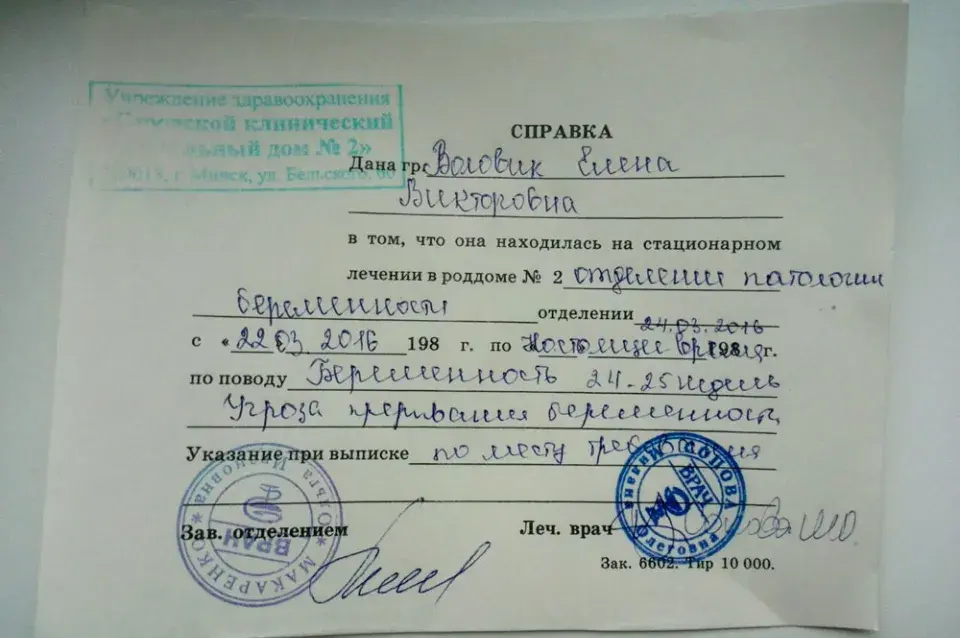 Учреждение здравоохранения
клинический
дом № 2»
г. Минск, ул. Бельского, 60
СПРАВКА
Дана гр. Воловик Елена
Викторовна
в том, что она находилась на стационарном
лечении в роддоме № 2 отделении патологии
беременности отделении 24.03.2016
с « 22 03 2016 198 г. по настоящее время 198 г.
по поводу Беременность 24-25 недель
Угроза прерывания беременности
Указание при выписке по месту требования
Зав. отделением
Леч. врач Попова М.О.
Зак. 6602. Тир 10 000.
МАКАРЕНКО * Ольга Ивановна *
ВРАЧ
ПОПОВА Олеговна
ВРАЧ